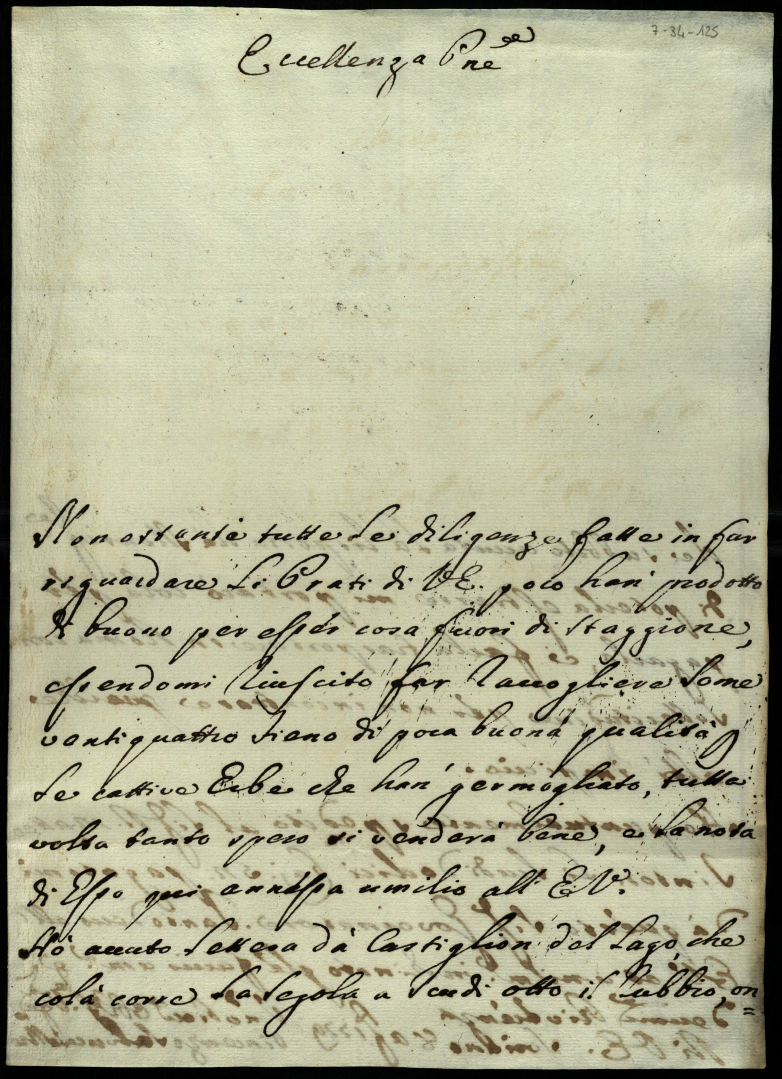 7-34-125
Eccellenza Pne
Non ostante tutte le diligenze fatte in far
risguardare li Prati di VE. poco han' prodotto
di buono per esser cosa fuori di staggione,
essendomi riuscito far raccogliere some
ventiquattro fieno di poca buona qualità p
le cattive Erbe che han' germogliato, tutta
volta tanto spero si venderà bene, e la nota
di Esso qui annessa umilio all' E.V.
Hò auuto lettera dà Castiglion del Lago, che
colà corre la segola a scudi otto il Rubbio, on=